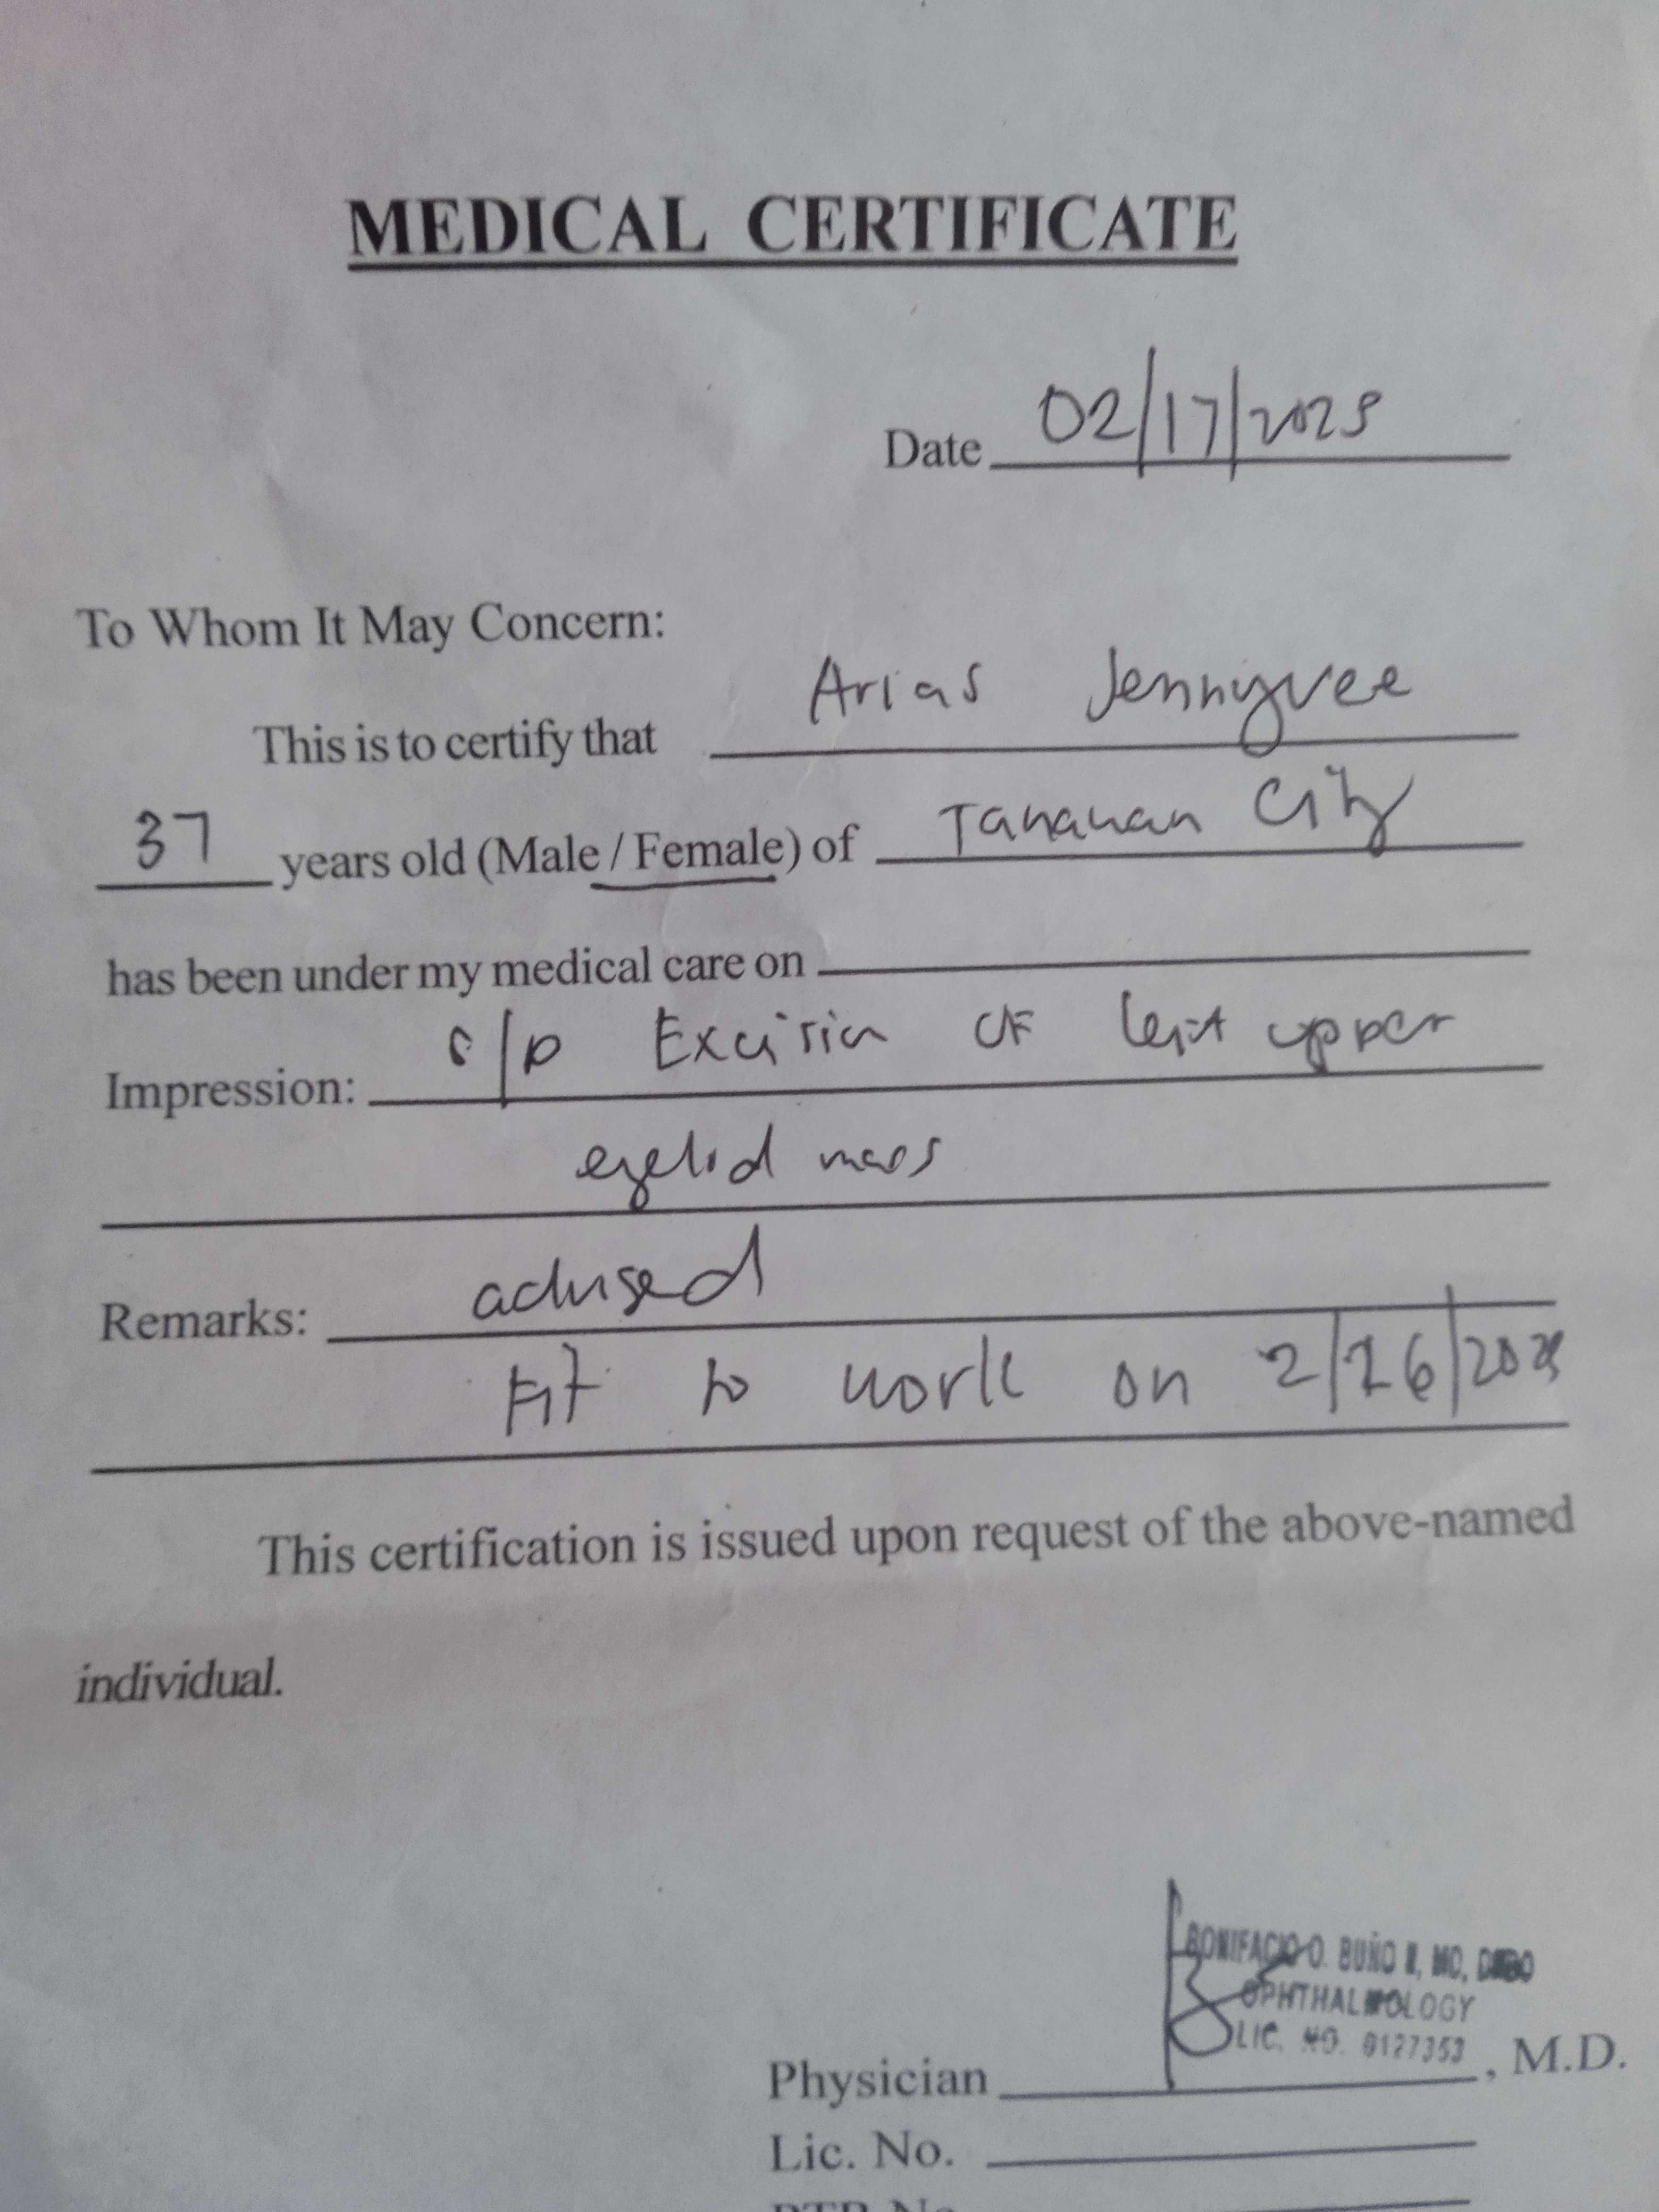 MEDICAL CERTIFICATE
Date 02/17/2025
To Whom It May Concern:
This is to certify that Arias Jennyvee
37 years old (Male / Female) of Tanauan City
has been under my medical care on
Impression: s/p Excision of left upper
eyelid mass
Remarks: advised
Fit to work on 2/26/2025
This certification is issued upon request of the above-named
individual.
BONIFACIO O. BUÑO II, MD, DPBO
OPHTHALMOLOGY
LIC. NO. 0127353
Physician , M.D.
Lic. No.
PTR No.